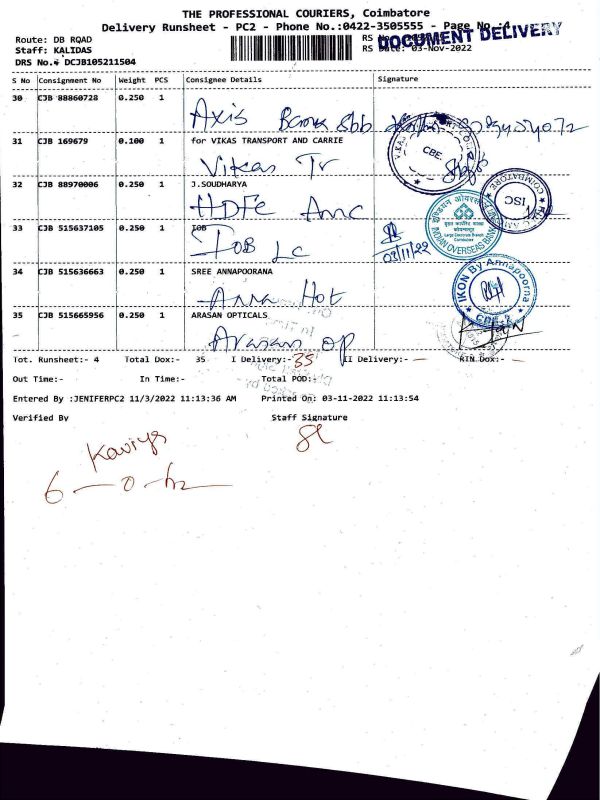 THE PROFESSIONAL COURIERS, Coimbatore
Delivery Runsheet - PC2 - Phone No.:0422-3505555 - Page No.:4
DOCUMENT DELIVERY
Route: DB ROAD
RS
Staff: KALIDAS
RS Date: 03-Nov-2022
DRS No.: DCJB105211504
S No Consignment No Weight PCS Consignee Details Signature
30 CJB 88860728 0.250 1
Axis Bank
31 CJB 169679 0.100 1 for VIKAS TRANSPORT AND CARRIE
Vikas Tr
CBE.
32 CJB 88970006 0.250 1 J.SOUDHARYA
HDFC Amc
COIMBATORE
ISC
33 CJB 515637105 0.250 1 IOB
IOB LC
03/11/22
INDIAN OVERSEAS BANK
34 CJB 515636663 0.250 1 SREE ANNAPOORANA
Anna Hot
IKON By Annapoorna
35 CJB 515665956 0.250 1 ARASAN OPTICALS
Arasan op
Tot. Runsheet:- 4 Total Dox:- 35 I Delivery:- 35 II Delivery:- RTN Dox:-
Out Time:- In Time:- Total POD:-
Entered By :JENIFERPC2 11/3/2022 11:13:36 AM Printed On: 03-11-2022 11:13:54
Verified By Staff Signature
Kaviya